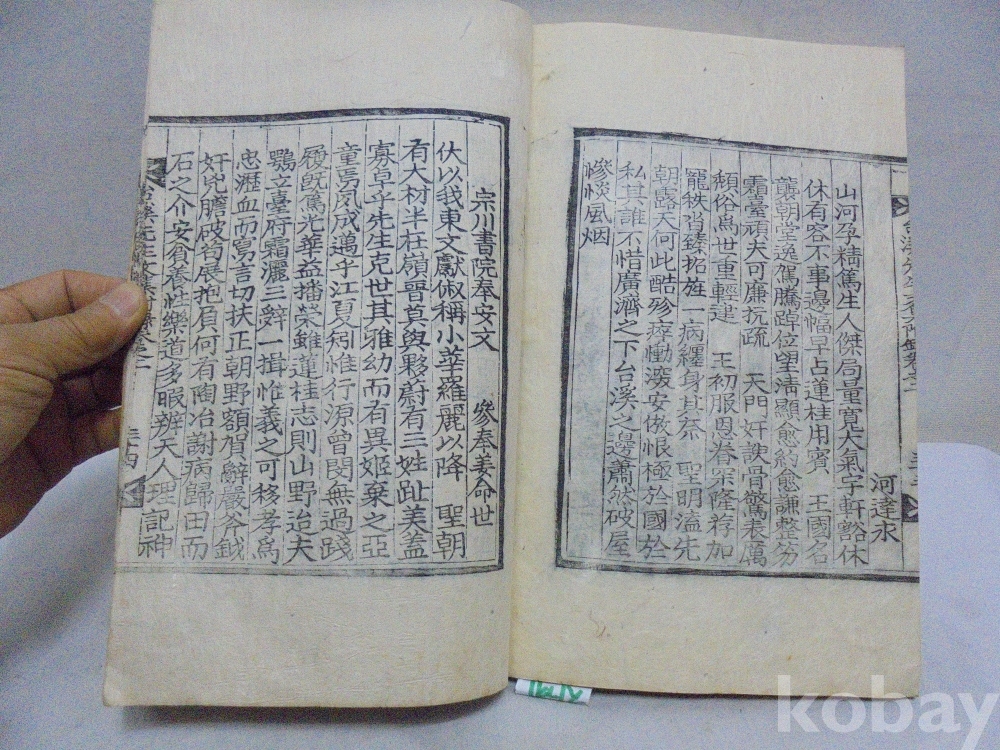 河達永
山河孕精篤生人傑局量寬大氣宇軒豁休
休有容不事邊幅早占蓮桂用賓 王國名
襲朝堂逸駕騰踔位望淸顯愈約愈謙整笏
霜臺頑夫可廉抗疏 天門奸諛骨驚表厲
頹俗爲世重輕逮 王初服恩眷深隆稃加
寵秩胥臻拓旌一病纏身其奈 聖明溘先
朝露天何此酷殄瘁慟瀀安倣悵極於國於
私其誰不惜廣濟之下台溪之邊蕭然破屋
慘惔風烟
宗川書院奉安文 參奉姜命世
伏以我東文獻俶稱小華羅麗以降 聖朝
有大材半在嶺晉莫與夥蔚有三姓趾美蓋
寡皐乎先生克世其雅幼而有異姬棄之亞
童焉夙成邁乎江夏矧惟行源曾閔無過踐
履旣篤光華益播榮雖蓮桂志則山野迨夫
鶚立臺府霜灑三辭一揖惟義之可移孝爲
忠瀝血而寫言切扶正朝野額賀辭嚴斧鉞
奸兇膽破筠展抱負何有陶冶謝病歸田而
石之介安貧養性樂道多暇辨天人理記神
三十四
kobay